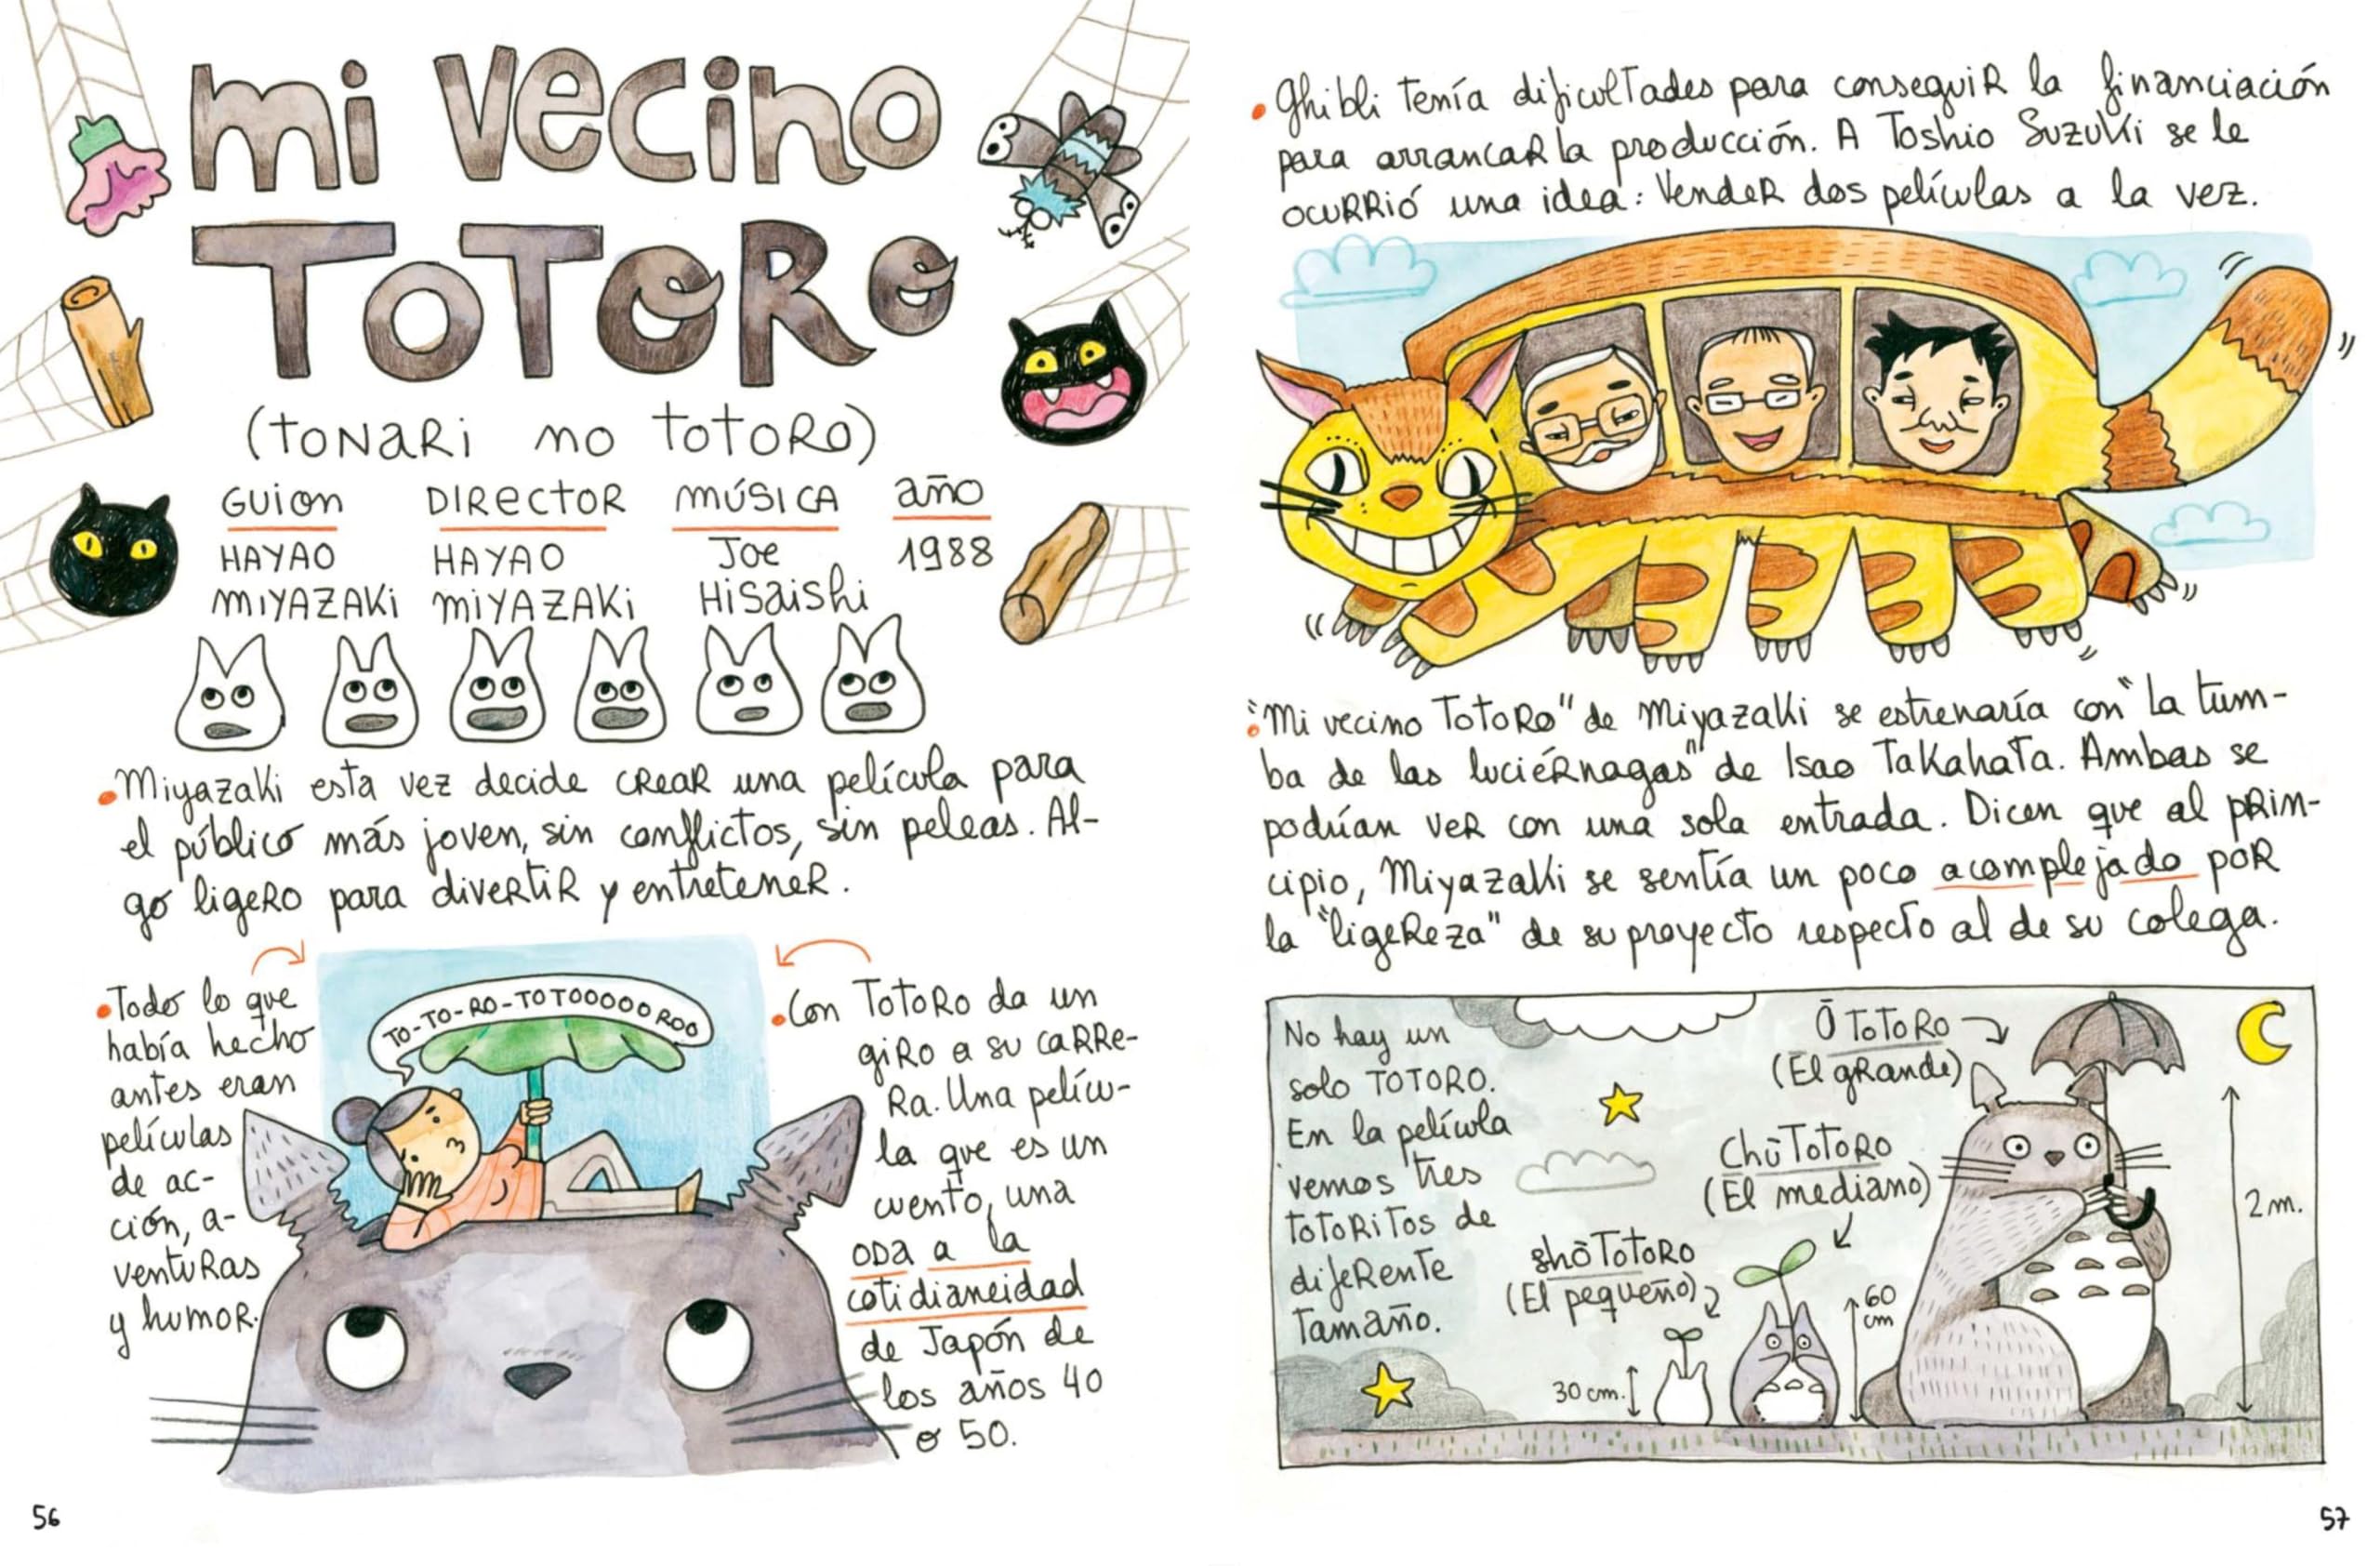 mi vecino
TOTORO
(TONARi no TOTORO)
GUION
HAYAO
MIYAZAKi
DIRECTOR
HAYAO
MIYAZAKi
MÚSICA
JOE
HiSaishi
año
1988
• Miyazaki esta vez decide CREAR una película para
el público más joven, sin conflictos, sin peleas. Al-
go ligero para divertir y entretener.
• Todo lo que
había hecho
antes eran
películas
de ac-
ción, a-
venturas
y humor.
TO-TO-RO-TOTOOOOO ROO
• Con Totoro da un
giro a su carre-
ra. Una pelícu-
la que es un
cuento, una
ODA a la
cotidianeidad
de Japón de
los años 40
o 50.
56
• Ghibli tenía dificultades para conseguir la financiación
para arrancar la producción. A Toshio Suzuki se le
ocurrió una idea: Vender dos películas a la vez.
• "Mi vecino Totoro" de Miyazaki se estrenaría con "La tum-
ba de las luciérnagas" de Isao Takahata. Ambas se
podrían ver con una sola entrada. Dicen que al prin-
cipio, Miyazaki se sentía un poco acomplejado por
la "ligereza" de su proyecto respecto al de su colega.
No hay un
solo TOTORO.
En la película
vemos tres
totoritos de
diferente
tamaño.
Ō TOTORO
(El grande)
Chū Totoro
(El mediano)
shō Totoro
(El pequeño)
30 cm.
60
cm
2 m.
57